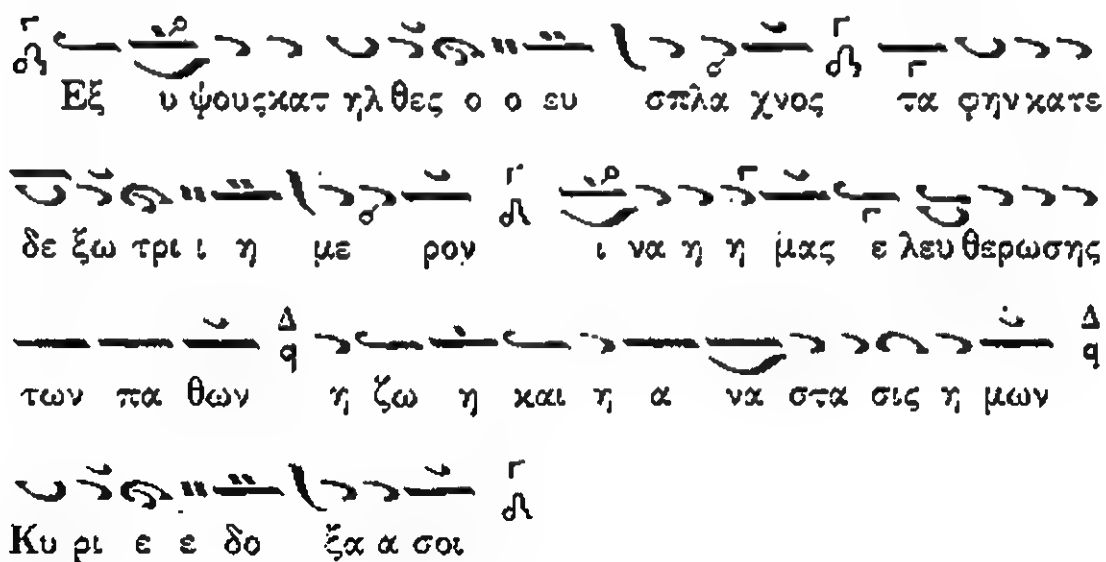 Εξ υ ψουςκατ ηλ θες ο ο ευ σπλα χνος τα φηνκατε
δε ξω τρι ι η με ρον ι να η η μας ε λευ θερωσης
των πα θων η ζω η και η α να στα σις η μων
Κυ ρι ε ε δο ξα α σοι